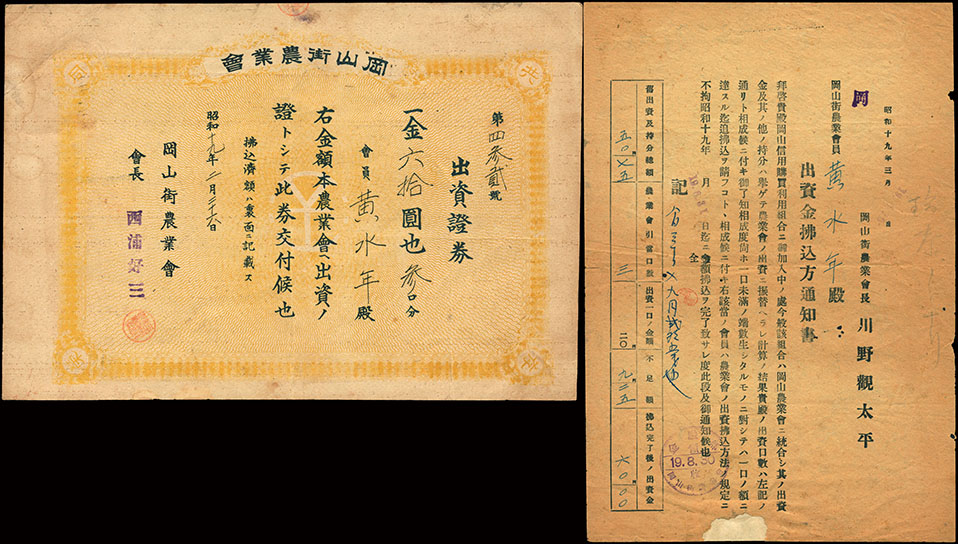 岡山街農業會
第四參貳號
出資證券
一金六拾圓也 參口分
會員 黃水年殿
右金額本農業會ヘ出資ノ
證トシテ此券交付候也
拂込濟額ハ裏面ニ記載ス
昭和十九年三月三十一日
岡山街農業會
會長 西浦好三
昭和十九年三月 日
岡山街農業會長 川野觀太平
岡
岡山街農業會員 黃水年殿
出資金拂込方通知書
拜啓貴殿岡山信用購買利用組合ニ御加入中ノ處今般該組合ハ岡山農業會ニ統合シ其ノ出資
金及其ノ他ノ持分ハ擧ゲテ農業會ノ出資ニ振替ヘラレ計算ノ結果貴殿ノ出資口數ハ左記ノ
通リト相成候ニ付キ御了知相成度尚ホ一口未滿ノ端數生シタルモノニ對シテハ一口ノ額ニ
達スル迄追拂込ヲ請フコト、相成候ニ付キ右該當ノ會員ハ農業會ノ出資拂込方法ノ規定ニ
不拘昭和十九年 月 日迄ニ全額拂込ヲ完了致サレ度此段及御通知候也
記
舊出資及持分總額 農業會引當口數 出資一口ノ金額 不足額 拂込完了後ノ出資金
五〇七五 三 二〇 九二五 六〇〇〇
19.8.30